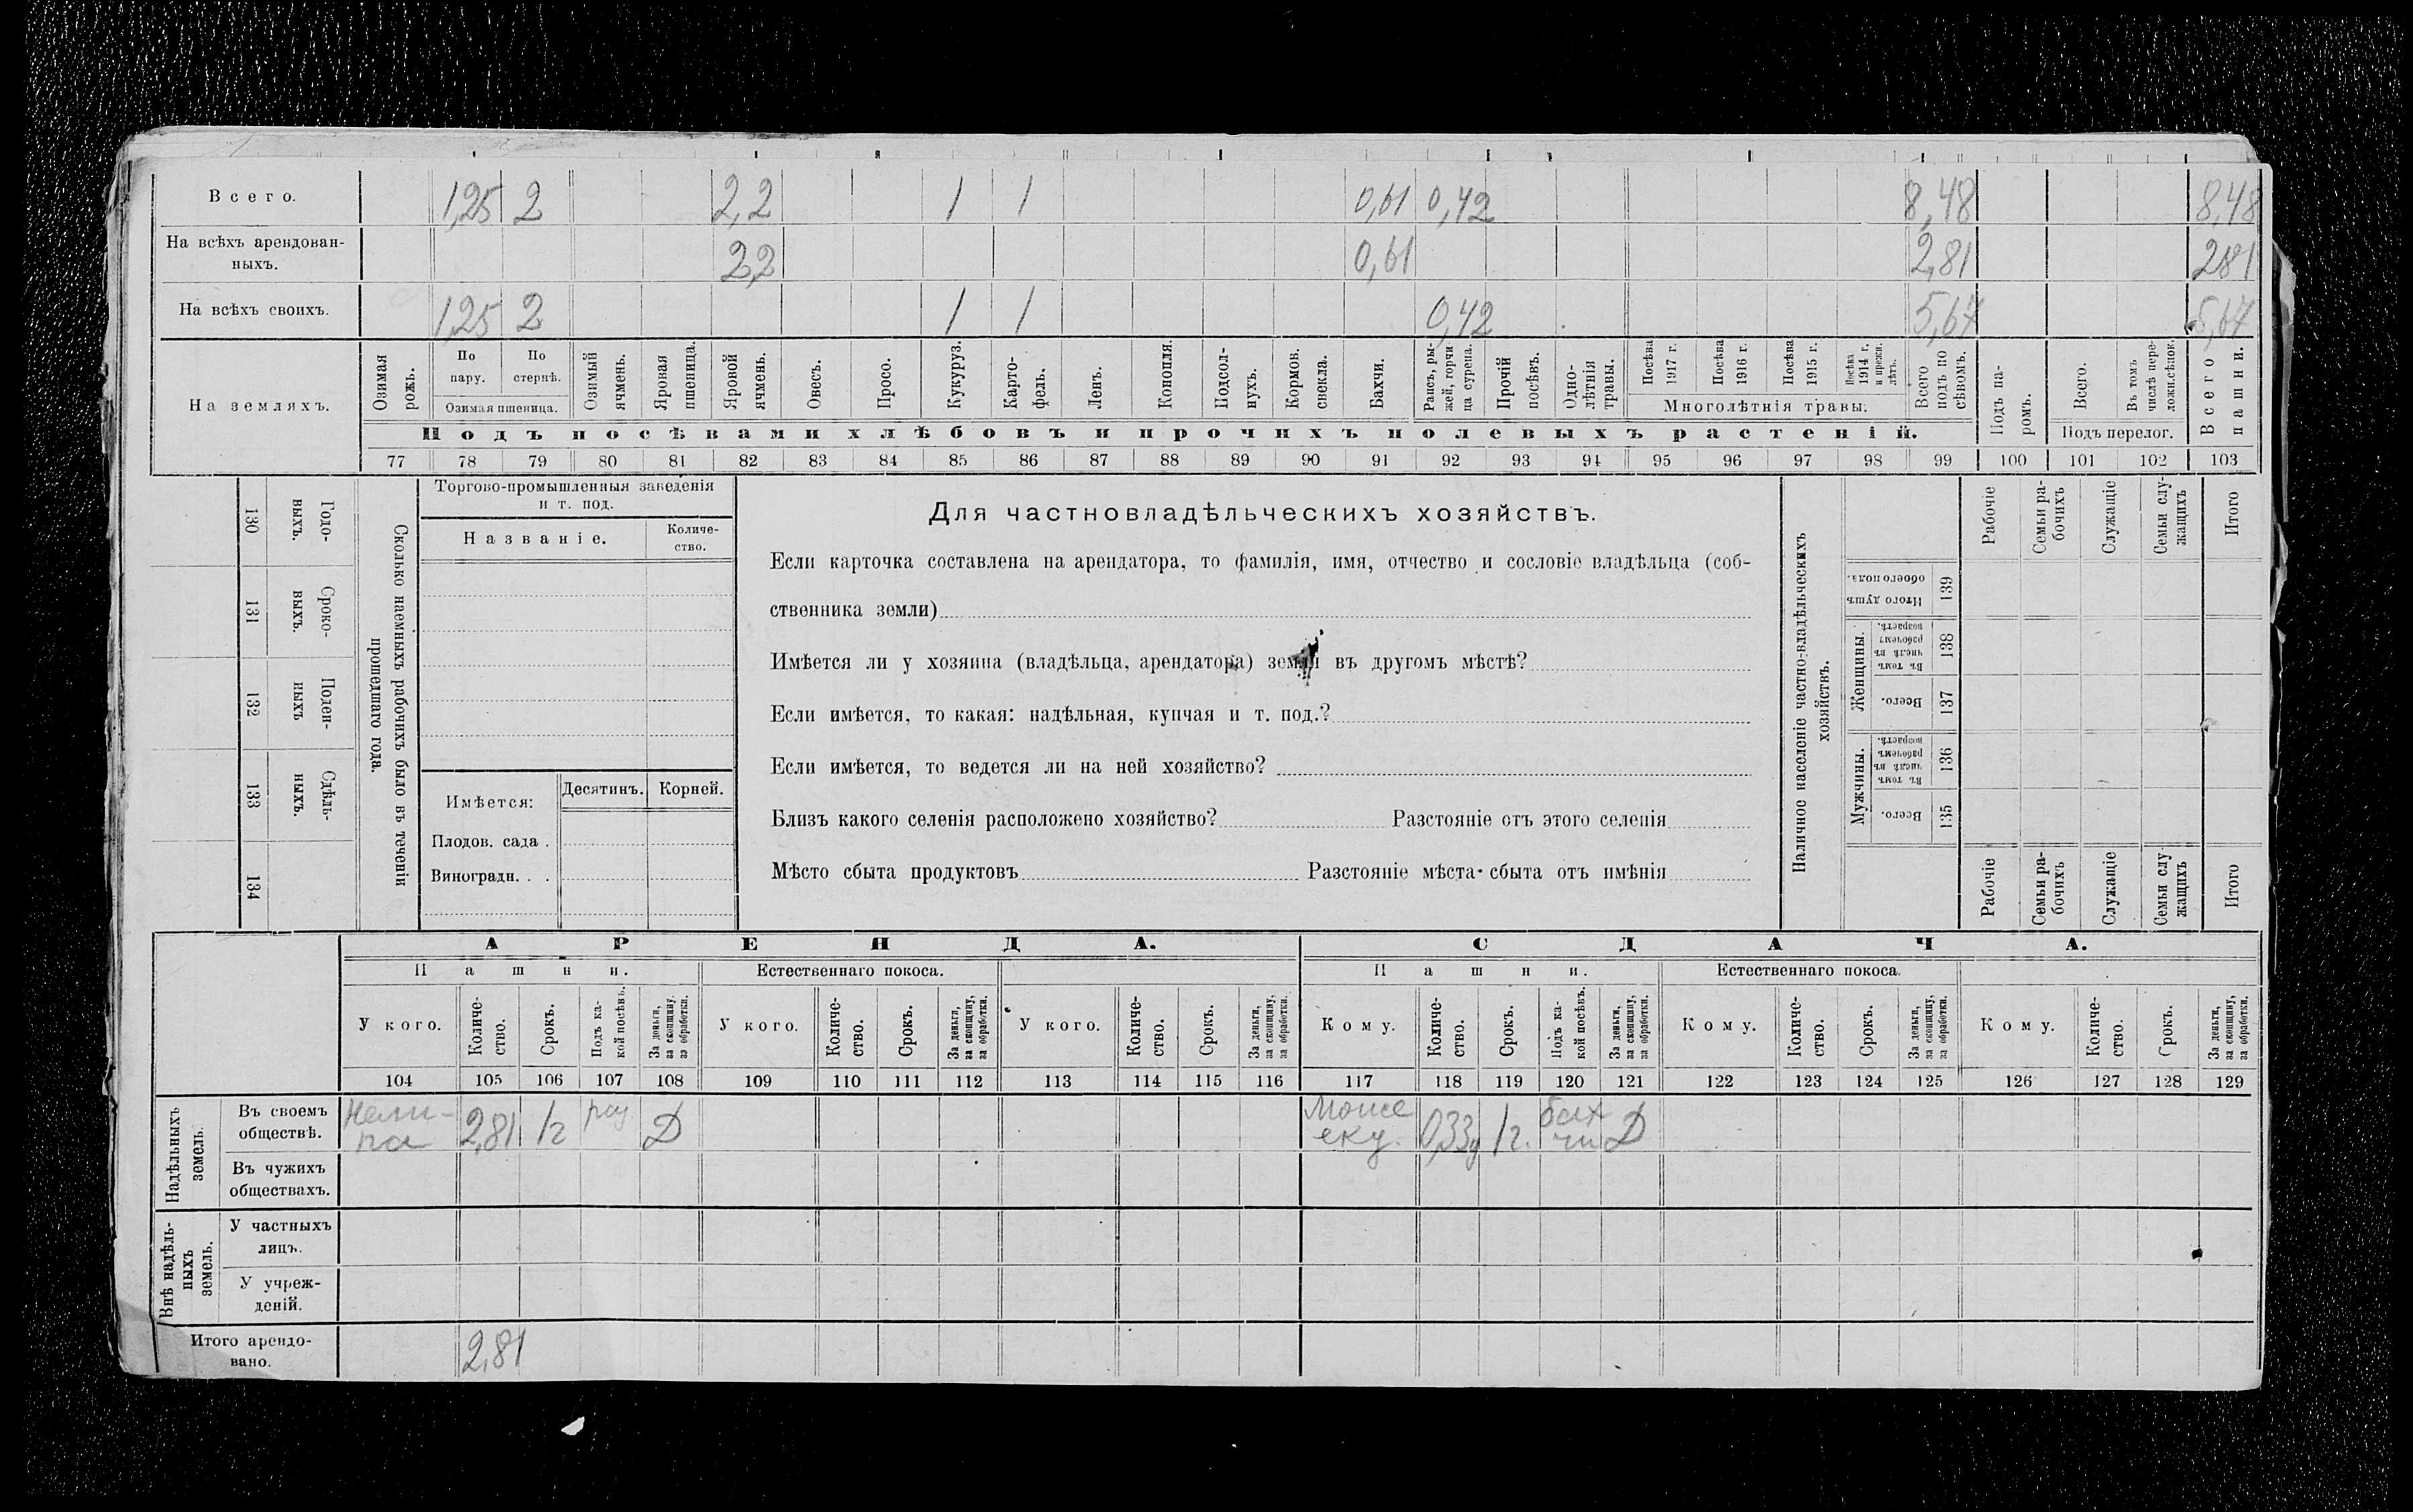 Всего. 1,25 2 2,2 1 1 0,61 0,42 8,48 8,48
На всѣхъ арендован-
ныхъ. 2,2 0,61 2,81 2,81
На всѣхъ своихъ. 1,25 2 1 1 0,42 5,67 5,67
На земляхъ.
Озимая рожь.
По пару.
По стернѣ.
Озимая пшеница.
Озимый ячмень.
Яровая пшеница.
Яровой ячмень.
Овесъ.
Просо.
Кукуруз.
Карто-
фель.
Ленъ.
Конопля.
Подсол-
нухъ.
Кормов. свекла.
Бахчи.
Рапсъ, ры-
жей, горчи
ца сурепа.
Прочій посѣвъ.
Одно-
лѣтнія травы.
Посѣва 1917 г.
Посѣва 1916 г.
Посѣва 1915 г.
Посѣва 1914 г. и прежн. лѣтъ.
Многолѣтнія травы.
Всего подъ по
сѣвомъ.
Подъ па-
ромъ.
Всего.
Въ томъ числѣ пере-
ложн.сѣнок.
Подъ перелог.
Всего пашни.
Подъ посѣвами хлѣбовъ и прочихъ полевыхъ растеній.
77 78 79 80 81 82 83 84 85 86 87 88 89 90 91 92 93 94 95 96 97 98 99 100 101 102 103
130 Годо-
выхъ.
131 Сроко-
выхъ.
132 Поден-
ныхъ
133 Сдѣль-
ныхъ.
134
Сколько наемныхъ рабочихъ было въ теченіи
прошедшаго года.
Торгово-промышленныя заведенія
и т. под.
Названіе.
Количе-
ство.
Имѣется:
Десятинъ. Корней.
Плодов. сада .
Виноградн. . .
Для частновладѣльческихъ хозяйствъ.
Если карточка составлена на арендатора, то фамилія, имя, отчество и сословіе владѣльца (соб-
ственника земли)
Имѣется ли у хозяина (владѣльца, арендатора) земля въ другомъ мѣстѣ?
Если имѣется, то какая: надѣльная, купчая и т. под.?
Если имѣется, то ведется ли на ней хозяйство?
Близъ какого селенія расположено хозяйство? Разстояніе отъ этого селенія
Мѣсто сбыта продуктовъ Разстояніе мѣста-сбыта отъ имѣнія
Наличное населеніе частно-владѣльческихъ
хозяйствъ.
Рабочіе
Семьи ра-
бочихъ
Служащіе
Семьи слу-
жащихъ
Итого
Итого душъ обоего пола. 139
Женщины.
Въ томъ числѣ въ рабочемъ возрастѣ. 138
Всего. 137
Мужчины.
Въ томъ числѣ въ рабочемъ возрастѣ. 136
Всего. 135
Рабочіе
Семьи ра-
бочихъ
Служащіе
Семьи слу
жащихъ
Итого
АРЕНДА. СДАЧА.
Пашни. Естественнаго покоса. Пашни. Естественнаго покоса.
У кого.
Количе-
ство.
Срокъ.
Подъ ка-
кой посѣвъ.
За деньги, за скопщину, за обработки.
У кого.
Количе-
ство.
Срокъ.
За деньги, за скопщину, за обработки.
У кого.
Количе-
ство.
Срокъ.
За деньги, за скопщину, за обработки.
Кому.
Количе-
ство.
Срокъ.
Подъ ка-
кой посѣвъ.
За деньги, за скопщину, за обработки.
Кому.
Количе-
ство.
Срокъ.
За деньги, за скопщину, за обработки.
Кому.
Количе-
ство.
Срокъ.
За деньги, за скопщину, за обработки.
104 105 106 107 108 109 110 111 112 113 114 115 116 117 118 119 120 121 122 123 124 125 126 127 128 129
Надѣльныхъ
земель.
Въ своемъ
обществѣ. 2,81 1г Д 0,33 1г. бах
чи Д
Въ чужихъ
обществахъ.
Внѣ надѣль-
ныхъ
земель.
У частныхъ
лицъ.
У учреж-
деній.
Итого арендо-
вано. 2,81